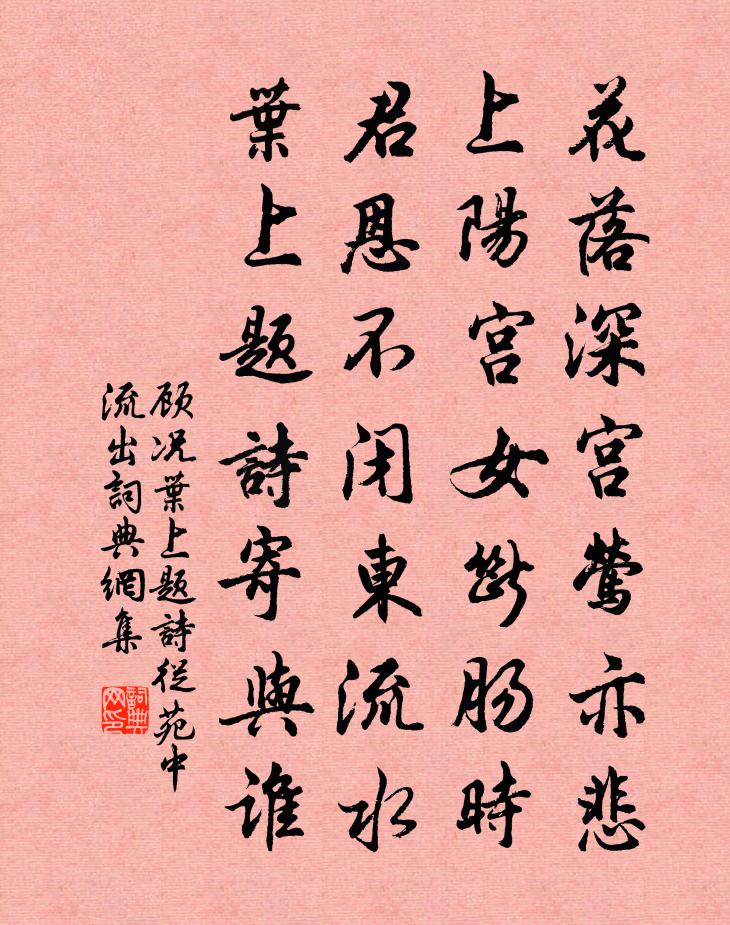 花落深宮鶯亦悲
上陽宮女斷腸時
君恩不閉東流水
葉上題詩寄與誰
顾况葉上题詩從苑中
流出詞典網集
詞典
网印